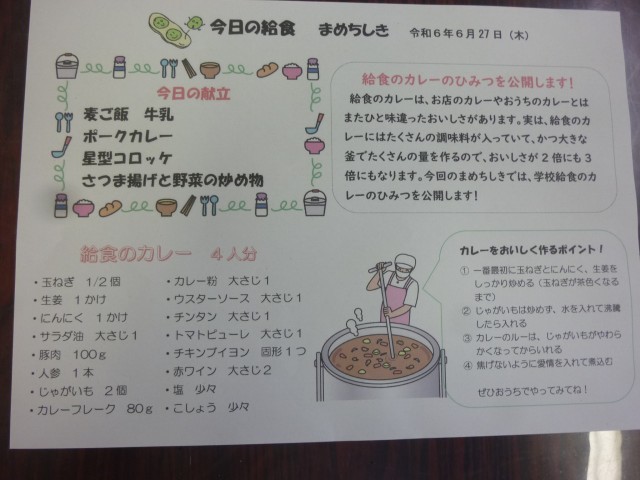 今日の給食　まめちしき　令和6年6月27日（木）
今日の献立
麦ご飯　牛乳
ポークカレー
星型コロッケ
さつま揚げと野菜の炒め物
給食のカレーのひみつを公開します！
給食のカレーは、お店のカレーやおうちのカレーとは
またひと味違ったおいしさがあります。実は、給食のカ
レーにはたくさんの調味料が入っていて、かつ大きな
釜でたくさんの量を作るので、おいしさが2倍にも3
倍にもなります。今回のまめちしきでは、学校給食のカ
レーのひみつを公開します！
給食のカレー　4人分
・玉ねぎ　1/2個
・生姜　1かけ
・にんにく　1かけ
・サラダ油　大さじ1
・豚肉　100g
・人参　1本
・じゃがいも　2個
・カレーフレーク　80g
・カレー粉　大さじ1
・ウスターソース　大さじ1
・チンタン　大さじ1
・トマトピューレ　大さじ1
・チキンブイヨン　固形1つ
・赤ワイン　大さじ2
・塩　少々
・こしょう　少々
カレーをおいしく作るポイント！
① 一番最初に玉ねぎとにんにく、生姜を
しっかり炒める（玉ねぎが茶色くなる
まで）
② じゃがいもは炒めず、水を入れて沸騰
したら入れる
③ カレーのルーは、じゃがいもがやわら
かくなってからいれる
④ 焦げないように愛情を入れて煮込む
ぜひおうちでやってみてね！